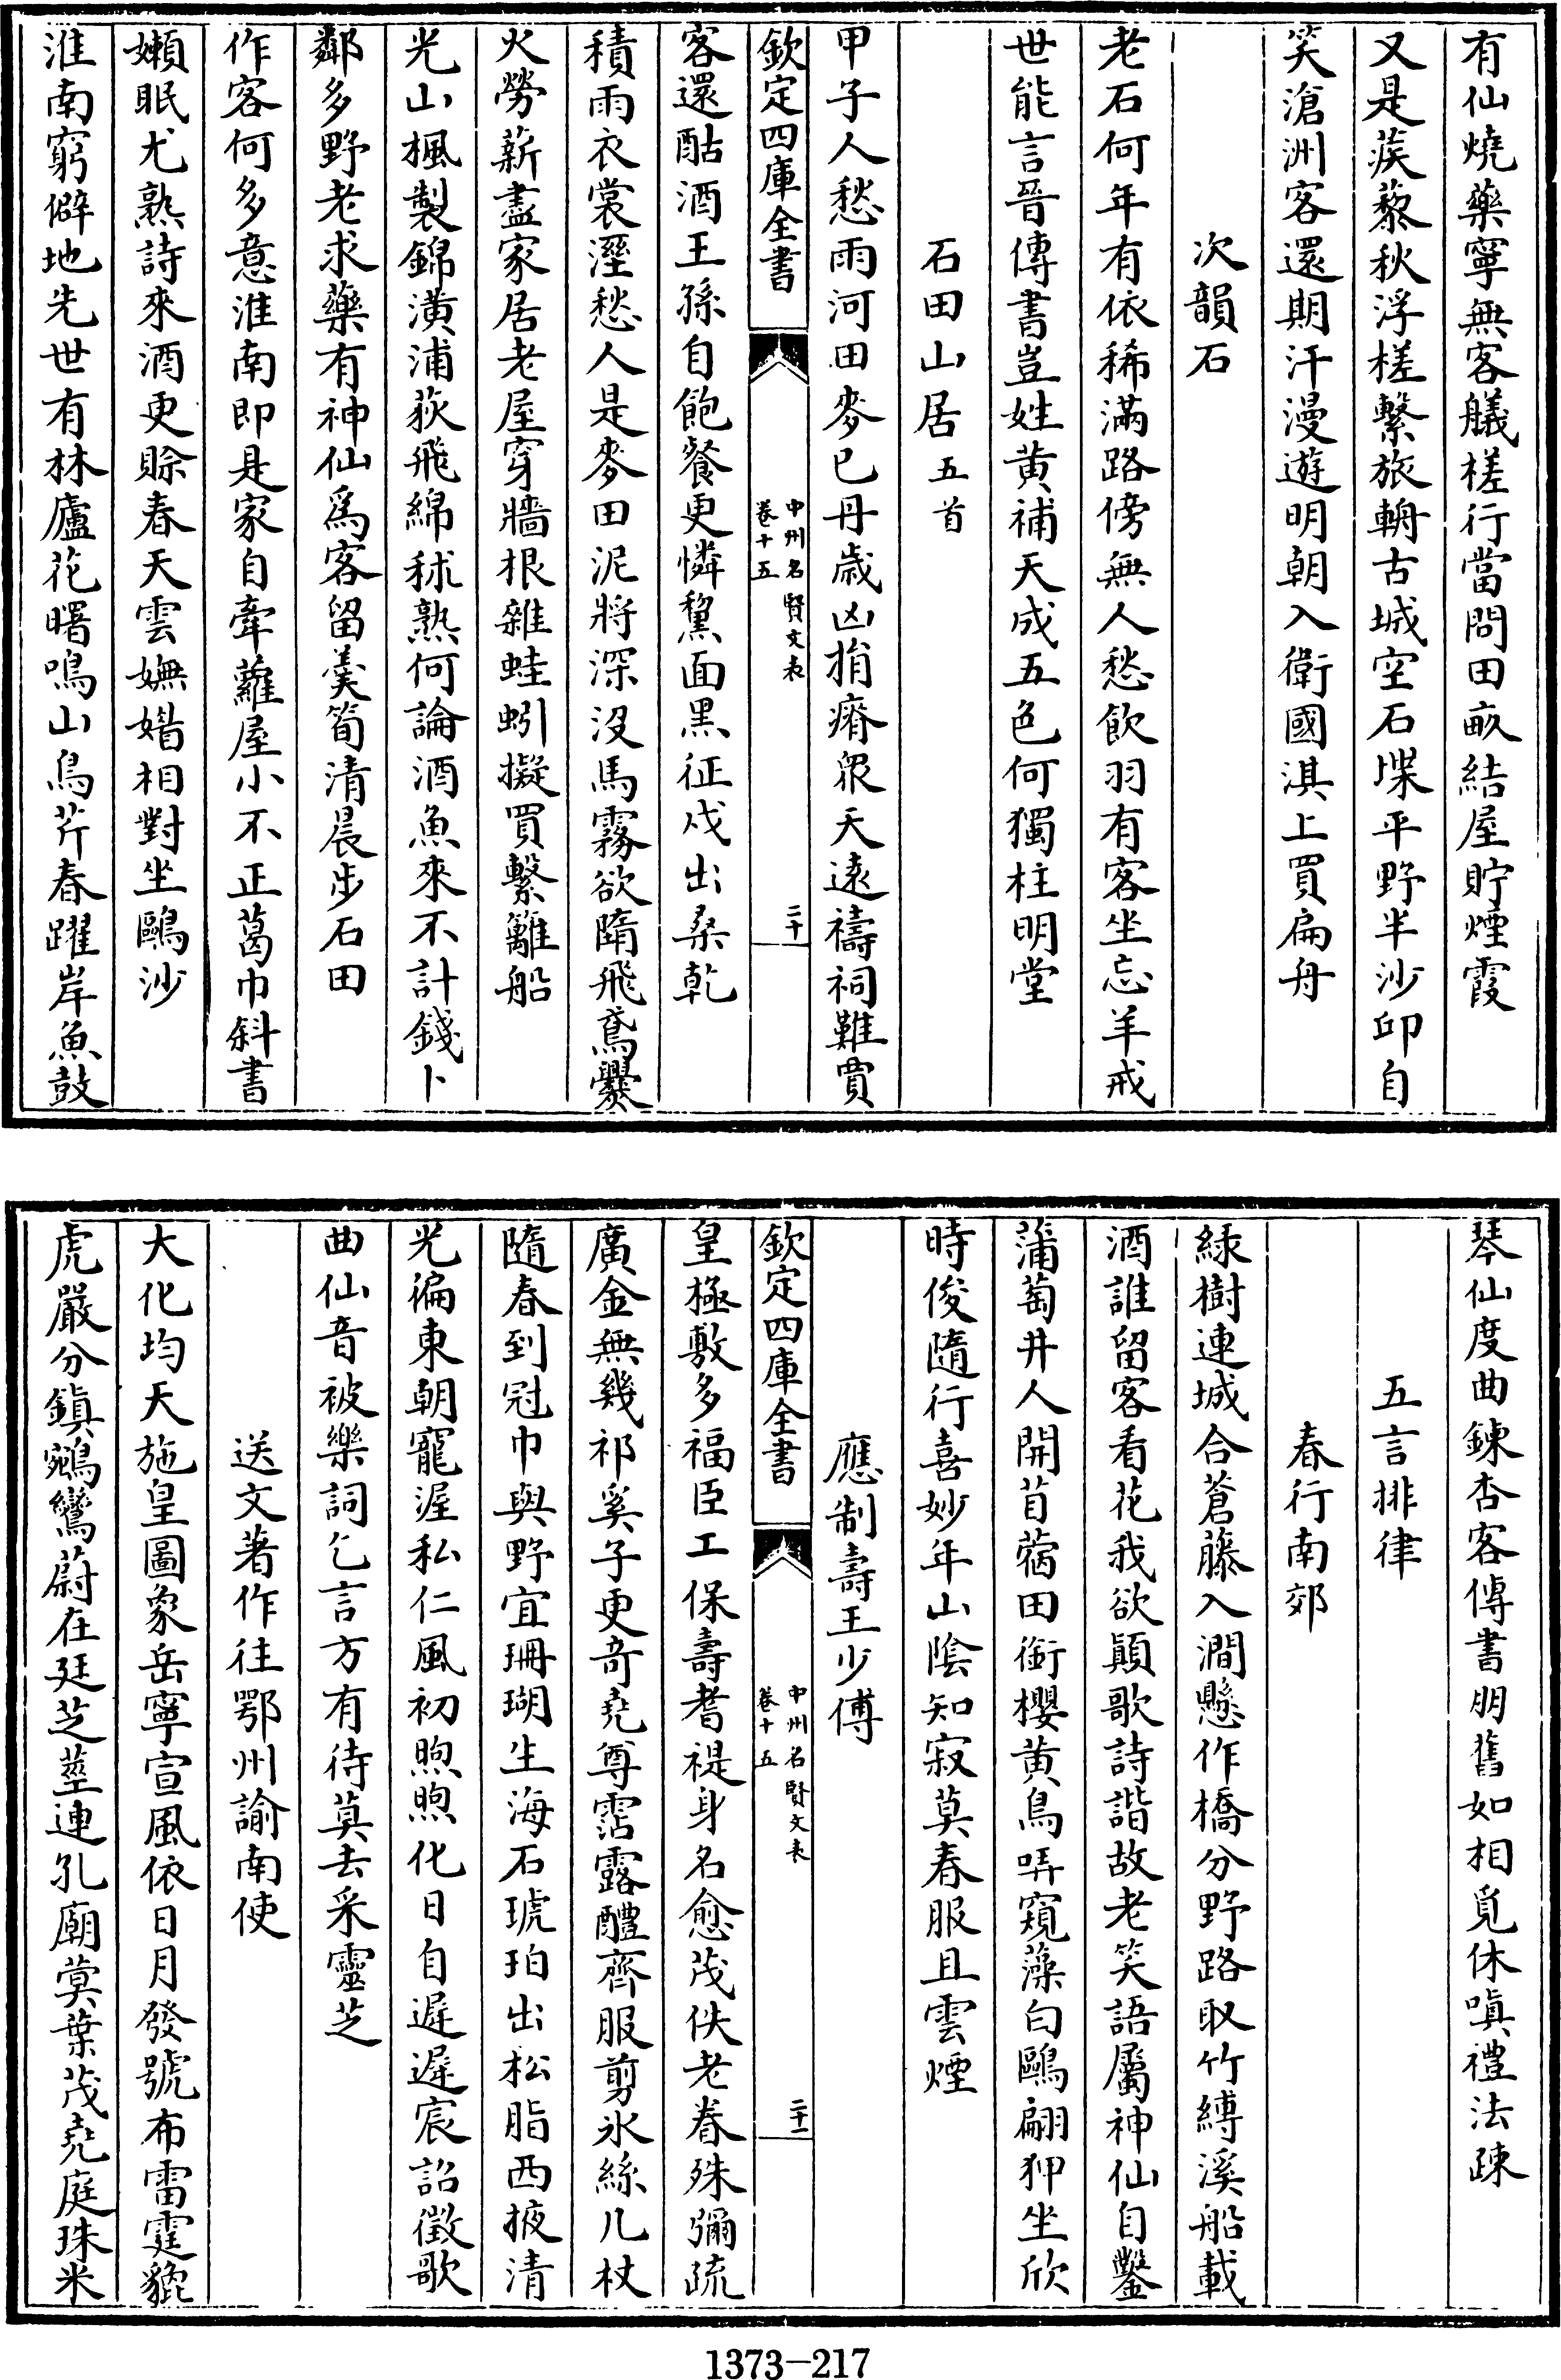 有仙燒藥寧無客艤槎行當問田畝結屋貯煙霞
又是蒺藜秋浮槎繫旅輈古城空石堞平野半沙邱自
笑滄洲客還期汗漫遊明朝入衛國淇上買扁舟
次韻石
老石何年有依稀滿路傍無人愁飲羽有客坐忘羊戒
世能言晉傳書豈姓黄補天成五色何獨柱明堂
石田山居五首
甲子人愁雨河田麥已丹歲凶捐瘠衆天遠禱祠難賈
欽定四庫全書
中州名賢文表
卷十五
二十
客還酤酒王孫自飽餐更憐黧面黑征戍出桑乾
積雨衣裳溼愁人是麥田泥將深没馬霧欲隋飛鳶爨
火勞薪盡家居老屋穿牆根雜蛙蚓擬買繫籬船
光山楓製錦潢浦荻飛綿秫熟何論酒魚來不計錢卜
鄰多野老求藥有神仙爲客留羮筍清晨步石田
作客何多意淮南即是家自牽蘿屋小不正葛巾斜書
嬾眠尤熟詩來酒更賒春天雲嫵媚相對坐鷗沙
淮南窮僻地先世有林廬花曙鳴山鳥芹春躍岸魚鼓
琴仙度曲鍊杏客傳書朋舊如相覓休嗔禮法疎
五言排律
春行南郊
緑樹連城合蒼藤入澗懸作橋分野路取竹縛溪船載
酒誰留客看花我欲顛歌詩諧故老笑語屬神仙自鑿
蒲萄井人開苜蓿田銜櫻黄鳥哢窺藻白鷗翩狎坐欣
時俊隨行喜妙年山陰知寂莫春服且雲煙
應制壽王少傅
欽定四庫全書
中州名賢文表
卷十五
二十一
皇極敷多福臣工保壽耆禔身名愈茂佚老眷殊彌疏
廣金無幾祁奚子更奇堯尊霑露醴齊服剪氷絲几杖
隨春到冠巾與野宜珊瑚生海石琥珀出松脂西掖清
光徧東朝寵渥私仁風初煦煦化日自遲遲宸詔徵歌
曲仙音被樂詞乞言方有待莫去采靈芝
送文著作往鄂州諭南使
大化均天施皇圖象岳寧宣風依日月發號布雷霆貔
虎嚴分鎮鵷鸞蔚在廷芝莖連孔廟蓂葉茂堯庭珠米
1373-217